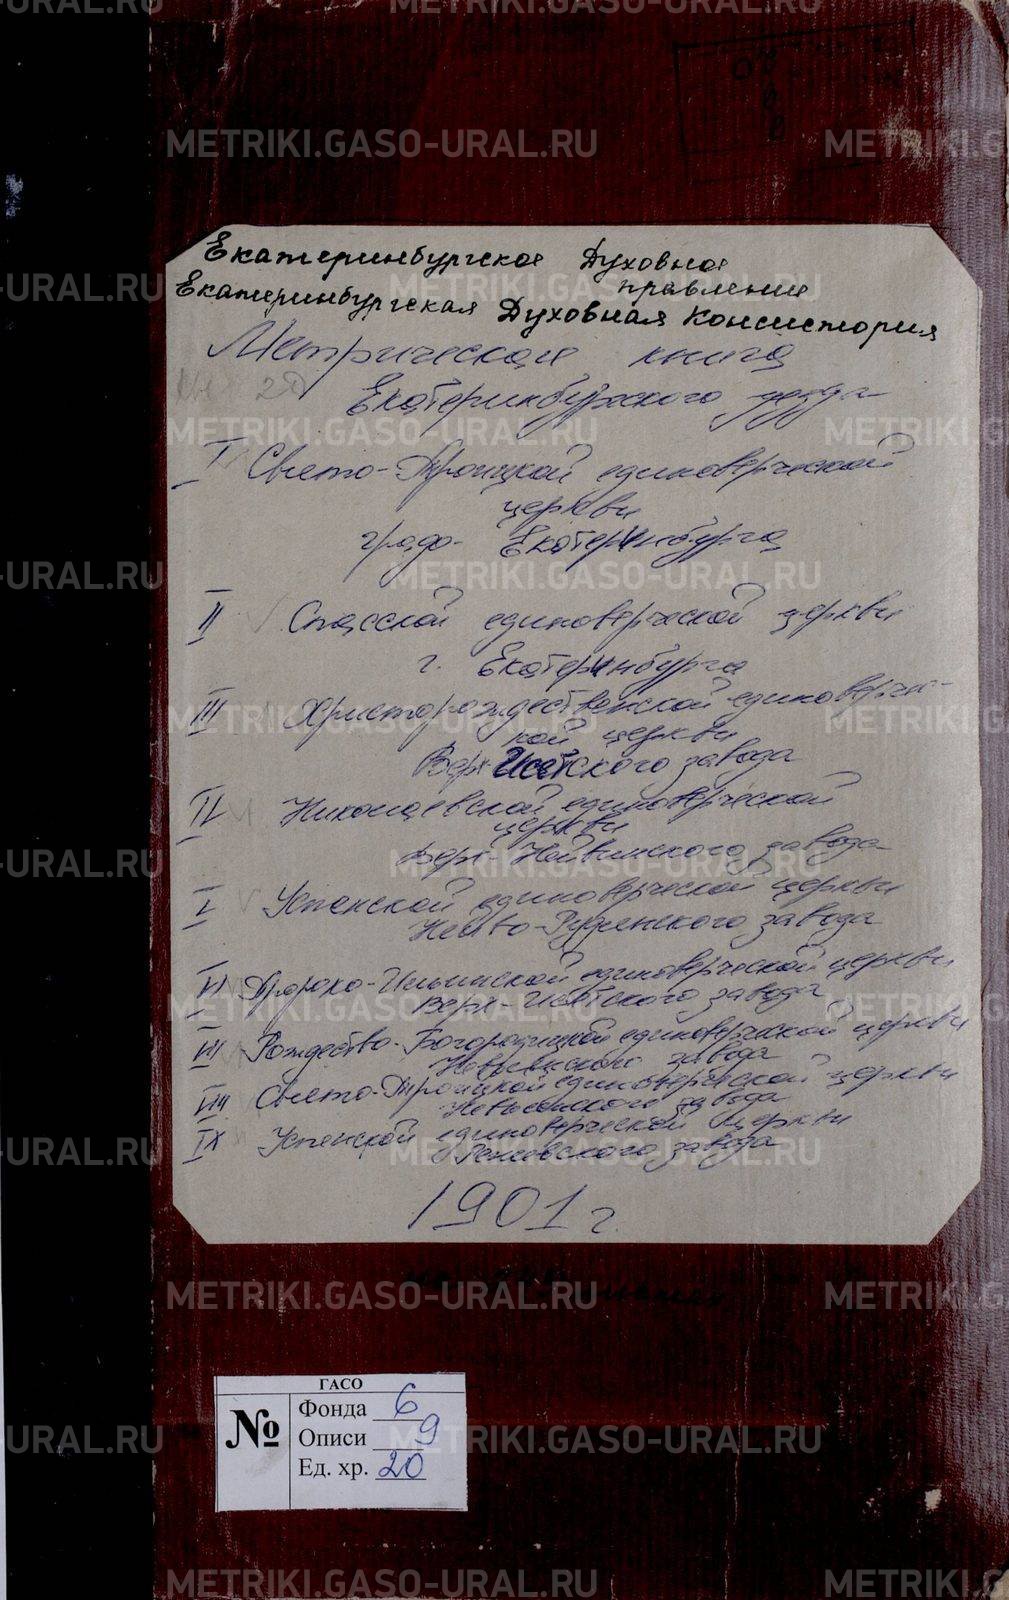 Екатеринбургское Духовное
правление
Екатеринбургская Духовная Консистория
Метрическая книга
Екатеринбужского уезда
I Свято-Троицкой единоверческой
церкви
градо- Екатеринбурга
II Спасской единоверческой церкви
г. Екатеринбурга
III Христорождественской единоверчес-
кой церкви
Верх Исетского завода
IV Николаевской единоверческой
церкви
Верх-Нейвинского завода
V Успенской единоверческой церкви
Нейво-Рудянского завода
VI Пророко-Ильинской единоверческой церкви
Верх-Исетского завода
VII Рождество-Богородицкой единоверческой церкви
Невьянского завода
VIII Свято-Троицкой единоверческой церкви
Невьянского завода
IX Успенской единоверческой церкви
Режевского завода
1901 г.
ГАСО
№
Фонда 6
Описи 9
Ед. хр. 20
METRIKI.GASO-URAL.RU